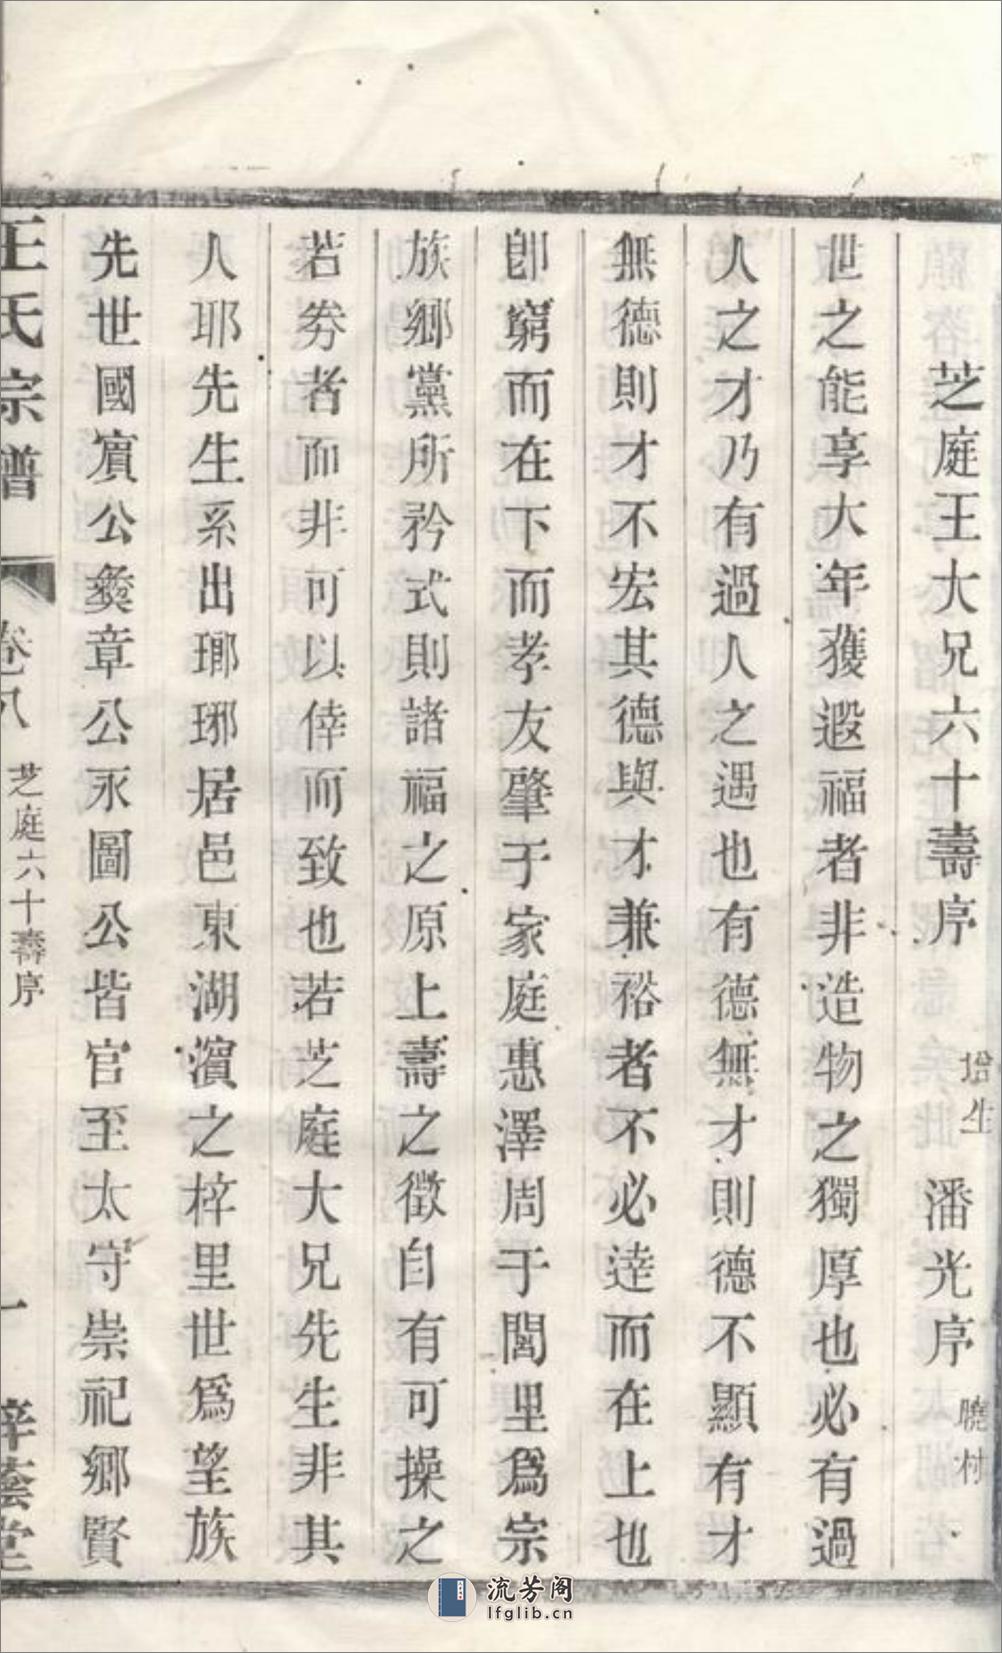 芝庭王大兄六十壽序 增生 潘光序 曉村
世之能享大年獲遐福者非造物之獨厚也必有過
人之才乃有過人之遇也有德無才則德不顯有才
無德則才不宏其德與才兼裕者不必逹而在上也
卽窮而在下而孝友肇于家庭惠澤周于閭里爲宗
族鄉黨所矜式則諸福之原上壽之徵自有可操之
若券者而非可以倖而致也若芝庭大兄先生非其
人耶先生系出瑯琊居邑東湖濵之梓里世爲望族
先世國賔公彙章公永圖公皆官至太守崇祀鄉賢
王氏宗譜 卷八 芝庭六十壽序 一 梓蔭堂
流芳阁
lfglib.cn